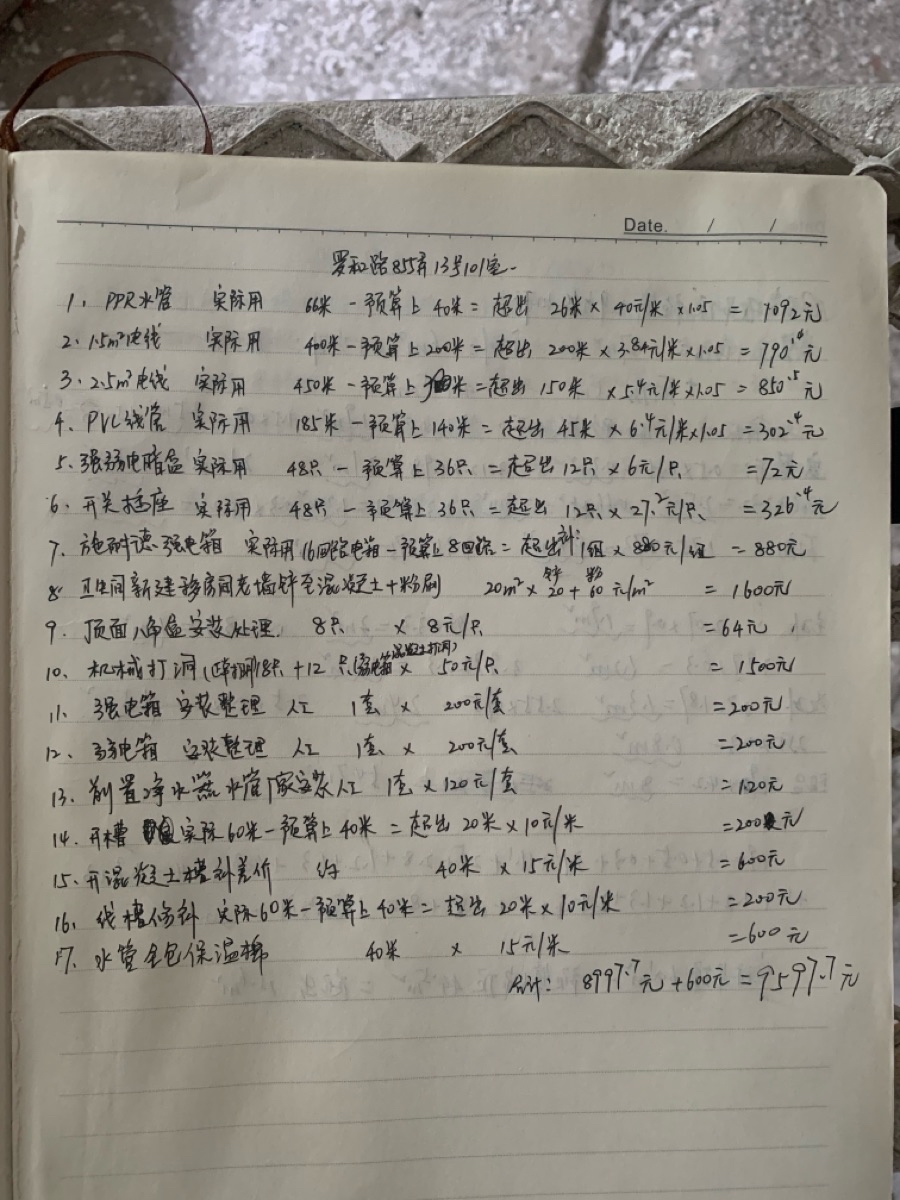 Date. / /
罗和路855弄13号101室.
1、PPR水管 实际用 66米-预算上40米=超出26米×40元/米×1.05=1092元
2、1.5m²电线 实际用 400米-预算上200米=超出200米×3.84元/米×1.05=790.16元
3、2.5m²电线 实际用 450米-预算上 米=超出150米×5.4元/米×1.05=850.5元
4、PVC线管 实际用 185米-预算上140米=超出45米×6.4元/米×1.05=302.4元
5、强弱电暗盒 实际用 48只-预算上36只=超出12只×6元/只=72元
6、开关插座 实际用 48只-预算上36只=超出12只×27.2元/只=326.4元
7、施耐德强电箱 实际用16回路电箱-预算上8回路=超出 1组×880元/组=880元
8、卫生间新建移房间老墙铲至混凝土+粉刷 20m²×铲20+粉60元/m²=1600元
9、顶面八角盒安装处理. 8只×8元/只=64元
10、机械打洞 18只+12只 (混凝土打洞)×50元/只=1500元
11、强电箱 安装整理 人工 1套×200元/套=200元
12、弱电箱 安装整理 人工 1套×200元/套=200元
13、前置净水器水管 安装人工 1套×120元/套=120元
14、开槽 实际60米-预算上40米=超出20米×10元/米=200元
15、开混凝土槽补差价 约 40米×15元/米=600元
16、线槽修补 实际60米-预算上40米=超出20米×10元/米=200元
17、水管全包保温棉 40米×15元/米=600元
合计:8997.7元+600元=9597.7元